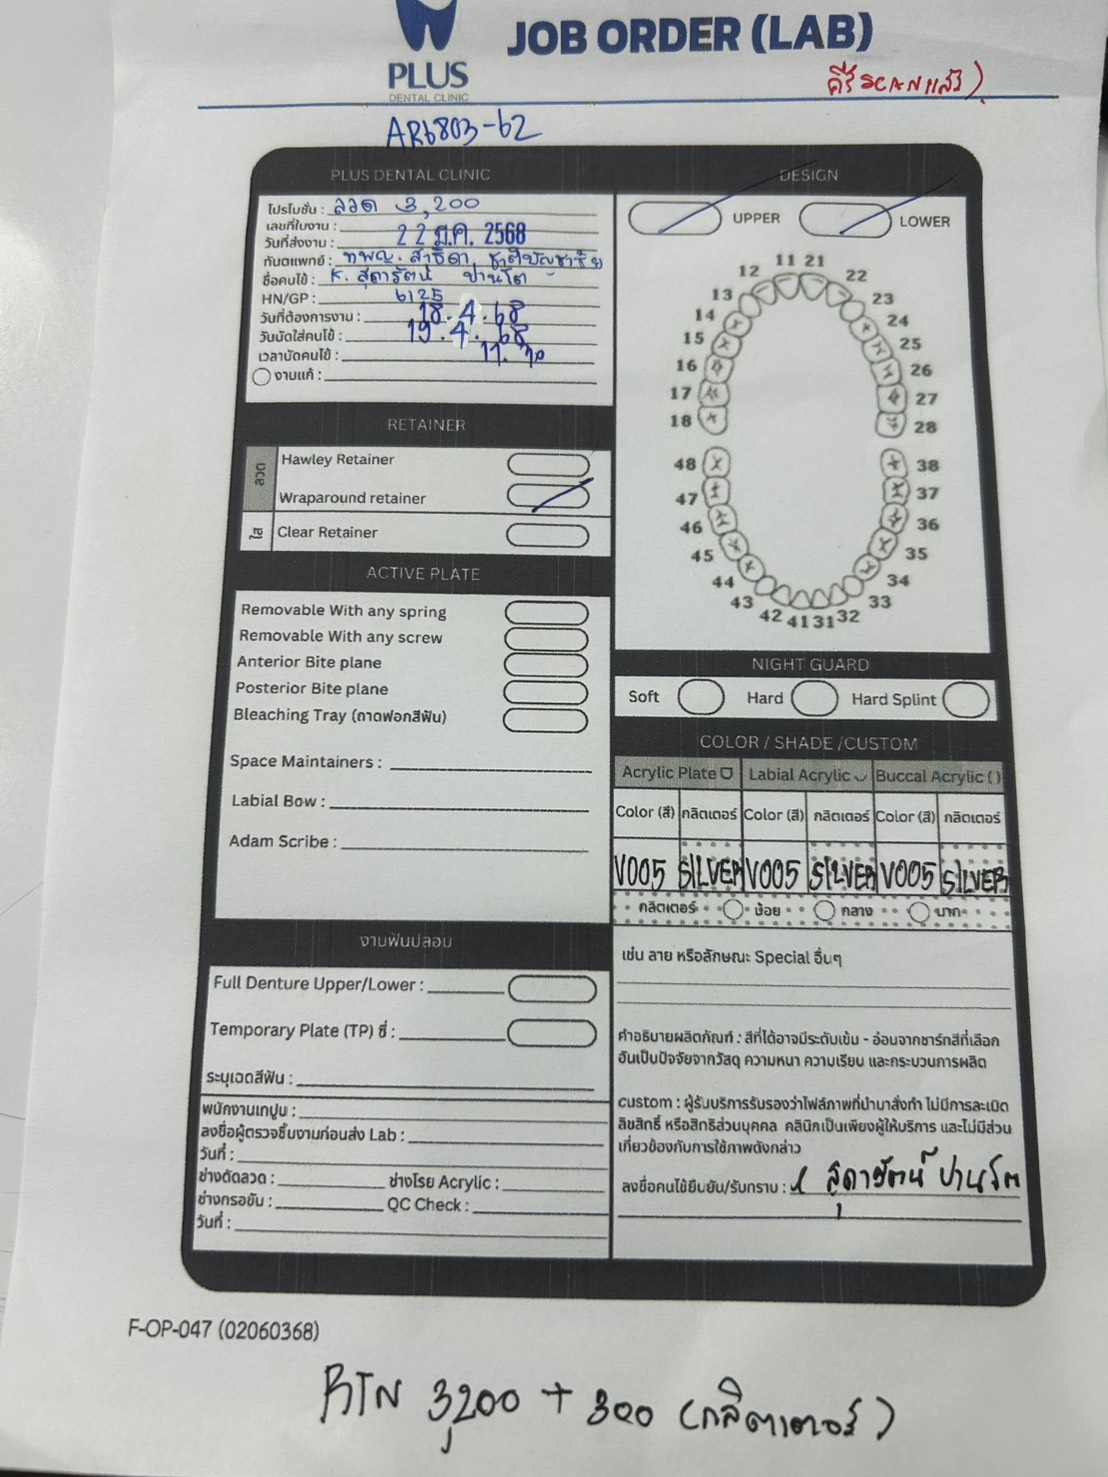 PLUS
DENTAL CLINIC
JOB ORDER (LAB)
AR6803-62
PLUS DENTAL CLINIC
โปรโมชั่น : ลวด 3,200
เลขที่ใบงาน :
วันที่ส่งงาน : 22 มี.ค. 2568
ทันตแพทย์ : ทพญ. สาธิดา ชาติบัญชาชัย
ชื่อคนไข้ : K. สุดารัตน์ ปานโต
HN/GP : 6125
วันที่ต้องการงาน : 18.4.68
วันนัดใส่คนไข้ : 19.4.68
เวลานัดคนไข้ : 11.
งานแก้ :
RETAINER
ลวด
Hawley Retainer
Wraparound retainer
ใส
Clear Retainer
ACTIVE PLATE
Removable With any spring
Removable With any screw
Anterior Bite plane
Posterior Bite plane
Bleaching Tray (ถาดฟอกสีฟัน)
Space Maintainers :
Labial Bow :
Adam Scribe :
งานฟันปลอม
Full Denture Upper/Lower :
Temporary Plate (TP) ซี่ :
ระบุเฉดสีฟัน :
พนักงานเทปูน :
ลงชื่อผู้ตรวจชิ้นงานก่อนส่ง Lab :
วันที่ :
ช่างดัดลวด : ช่างโรย Acrylic :
ช่างกรอขัน : QC Check :
วันที่ :
DESIGN
UPPER LOWER
11 21
12 22
13 23
14 24
15 25
16 26
17 27
18 28
48 38
47 37
46 36
45 35
44 34
43 33
42 41 31 32
NIGHT GUARD
Soft Hard Hard Splint
COLOR / SHADE /CUSTOM
Acrylic Plate Labial Acrylic Buccal Acrylic ( )
Color (สี) กลิตเตอร์ Color (สี) กลิตเตอร์ Color (สี) กลิตเตอร์
V005 SILVER V005 SILVER V005 SILVER
กลิตเตอร์ น้อย กลาง มาก
เช่น ลาย หรือลักษณะ Special อื่นๆ
คำอธิบายผลิตภัณฑ์ : สีที่ได้อาจมีระดับเข้ม - อ่อนจากชาร์ทสีที่เลือก
อันเป็นปัจจัยจากวัสดุ ความหนา ความเรียบ และกระบวนการผลิต
custom : ผู้รับบริการรับรองว่าไฟล์ภาพที่นำมาสั่งทำ ไม่มีการละเมิด
ลิขสิทธิ์ หรือสิทธิส่วนบุคคล คลินิกเป็นเพียงผู้ให้บริการ และไม่มีส่วน
เกี่ยวข้องกับการใช้ภาพดังกล่าว
ลงชื่อคนไข้ยืนยัน/รับทราบ : x สุดารัตน์ ปานโต
F-OP-047 (02060368)
RTN 3,200 + 300 (กลิตเตอร์)